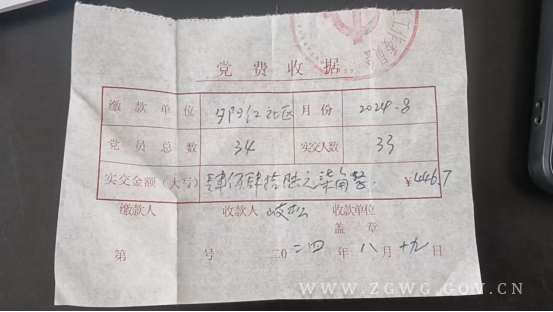 党费收据
缴款单位 夕阳红社区 月份 2024-8
党员总数 34 实交人数 33
实交金额(大写) 肆佰肆拾陆元柒角整. ¥446.7
缴款人 收款人 收款单位
盖章
第 号 二0二四年八月十九日
WWW.ZGWG.GOV.CN